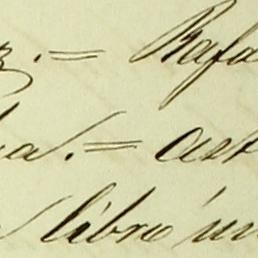 z.= Rafa
a.= ast
libro in